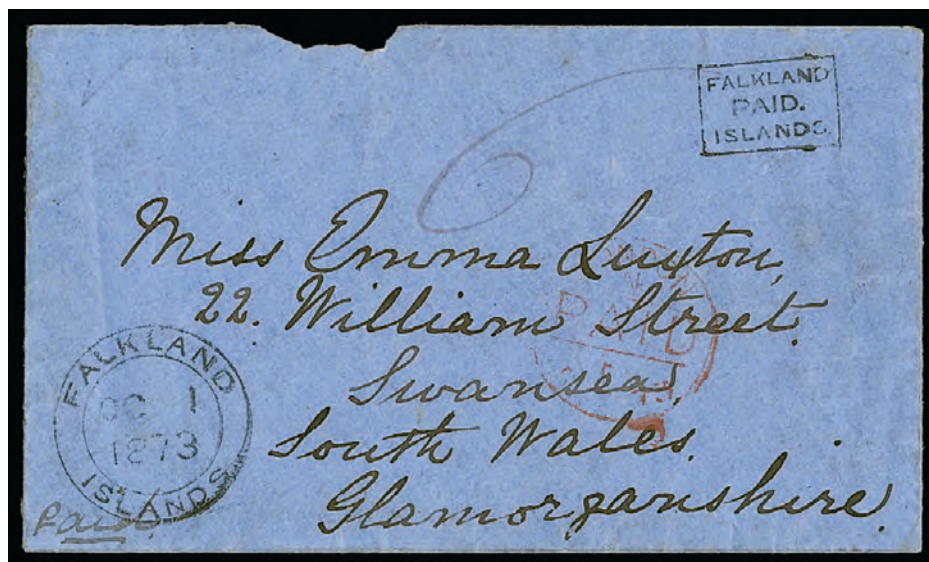 FALKLAND
PAID.
ISLANDS.
6
Miss Emma Luxton,
22. William Street.
Swansea,
South Wales.
Glamorganshire.
PAID
FALKLAND
OC 1
1873
ISLANDS
Paid